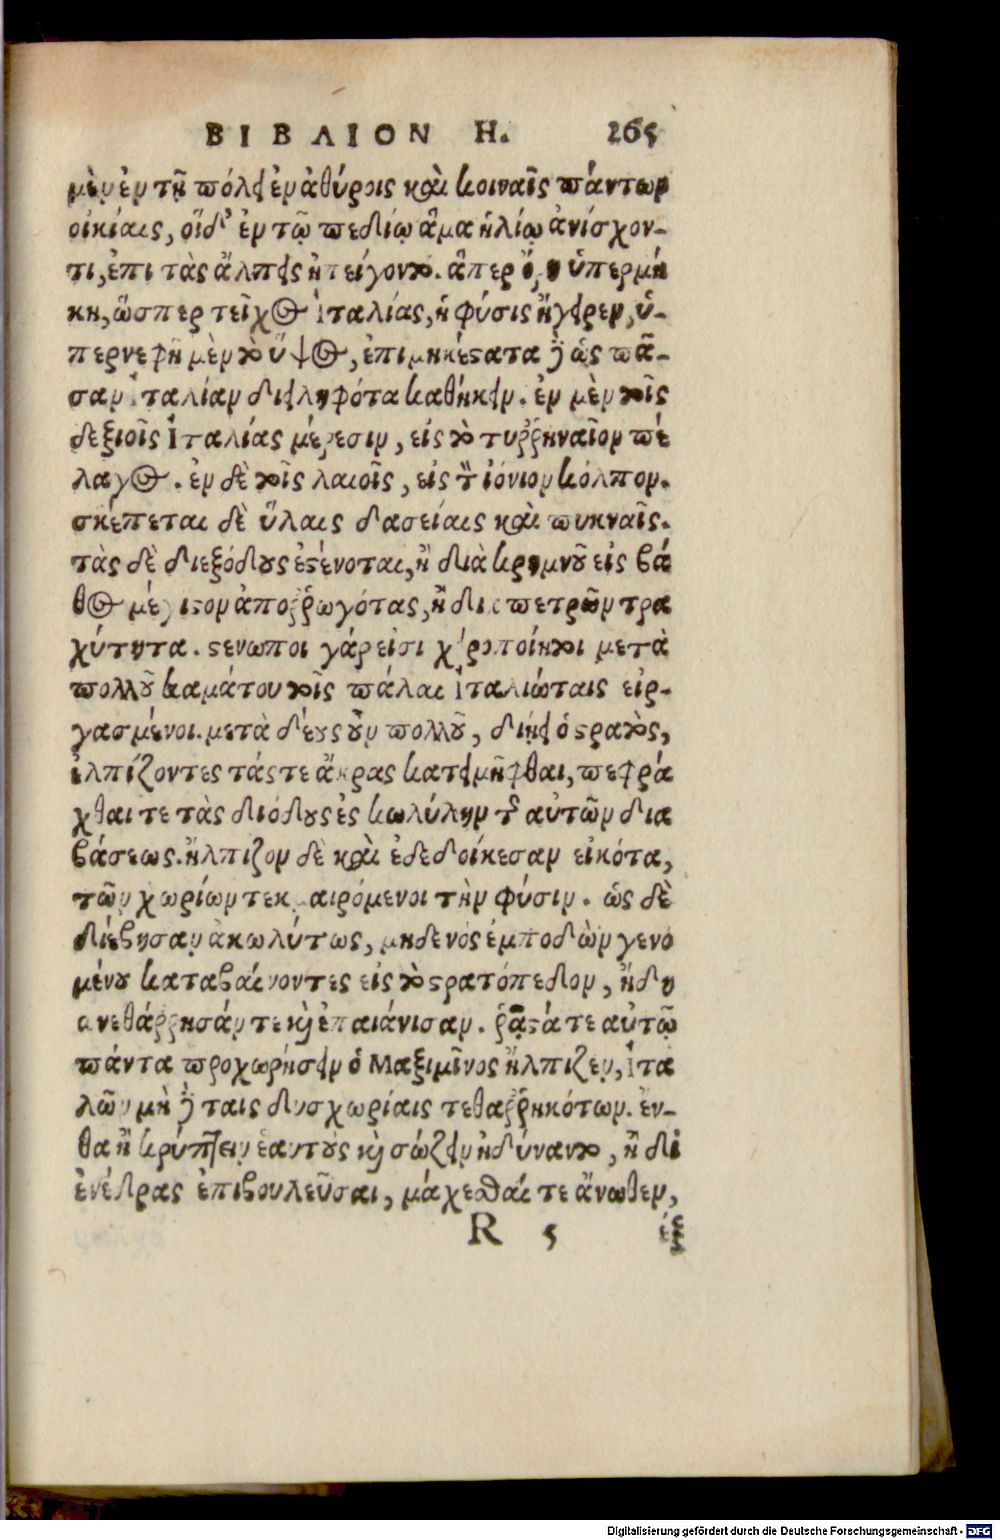 ΒΙΒΛΙΟΝ Η. 265
μὲν ἐν τῇ πόλει ἐν ἀθύροις καὶ κοιναῖς πάντων
οἰκίαις, οἵδ' ἐν τῷ πεδίῳ ἅμα ἡλίῳ ἀνίσχον-
τι, ἐπι τὰς ἄλπεις ἠπείγοντο. ἅπερ ὄρη ὑπερμή
κη, ὥσπερ τεῖχος Ἰταλίας, ἡ φύσις ἤγειρεν, ὑ-
περνεφῆ μὲν τὸ ὕψος, ἐπιμηκέστατα δὲ ὡς πᾶ-
σαν Ἰταλίαν διειληφότα καθήκειν. ἐν μὲν τοῖς
δεξιοῖς Ἰταλίας μέρεσιν, εἰς τὸ τυῤῥηναῖον πέ
λαγος. ἐν δὲ τοῖς λαιοῖς, εἰς τὸν ἰόνιον κόλπον.
σκέπεται δὲ ὕλαις δασείαις καὶ πυκναῖς.
τὰς δὲ διεξόδους ἐστένοται, ἢ διὰ κρημνοῦ εἰς βά
θος μέγιστον ἀποῤῥωγότας, ἢ δια πετρῶν τρα
χύτητα. στενωποι γάρ εἰσι χειροποίητοι μετὰ
πολλοῦ καμάτου τοῖς πάλαι Ἰταλιώταις εἰρ-
γασμένοι. μετὰ δέους οὖν πολλοῦ, διῄει ὁ στρατὸς,
ἐλπίζοντες τάς τε ἄκρας κατειλῆφθαι, πεφρά
χθαι τε τὰς διόδους ἐς κωλύμην τῆς αὐτῶν δια
βάσεως. ἤλπιζον δὲ καὶ ἐδεδοίκεσαν εἰκότα,
τῶν χωρίων τεκμαιρόμενοι τὴν φύσιν. ὡς δὲ
διέβησαν ἀκωλύτως, μηδενὸς ἐμποδὼν γενο
μένου καταβαίνοντες εἰς τὸ στρατόπεδον, ἤδη
ανεθάῤῥησάν τε καὶ ἐπαιάνισαν. ῥᾷστά τε αὐτῷ
πάντα προχωρήσειν ὁ Μαξιμῖνος ἤλπιζεν, Ἰτα
λῶν μὴ δὲ ταις δυσχωρίαις τεθαῤῥηκότων. ἔν-
θα ἢ κρύπτειν ἑαυτοὺς καὶ σώζειν ἠδύναντο, ἢ δι
ἐνέδρας ἐπιβουλεῦσαι, μάχεσθαί τε ἄνωθεν,
R 5 ἐξ
Digitalisierung gefördert durch die Deutsche Forschungsgemeinschaft - DFG